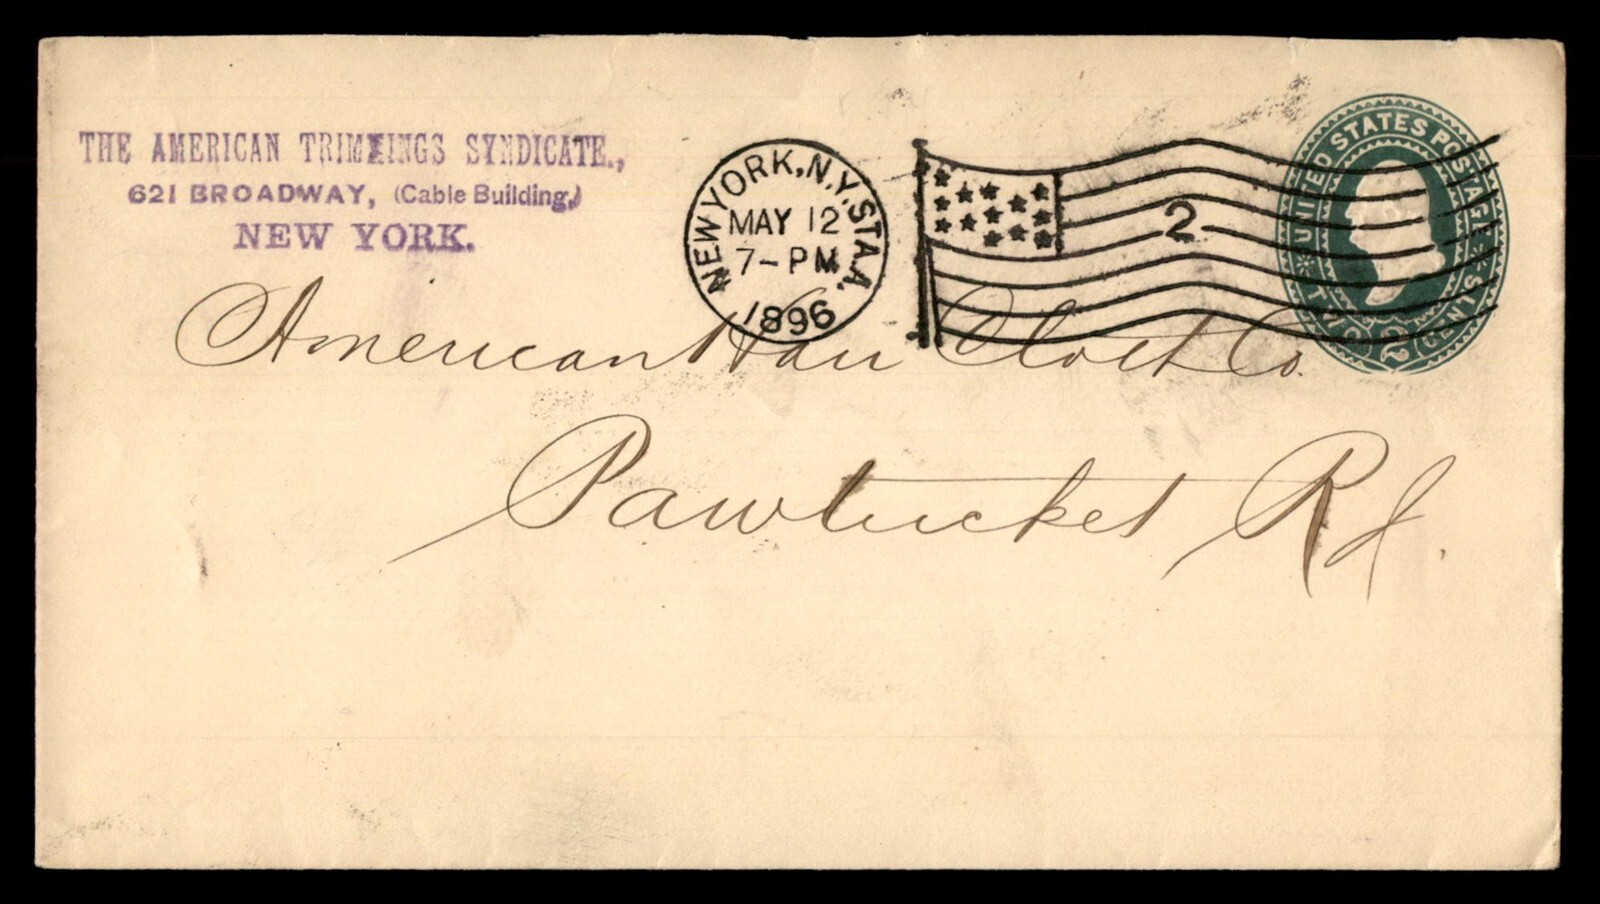 THE AMERICAN TRIMMINGS SYNDICATE.,
621 BROADWAY, (Cable Building,)
NEW YORK.
NEW YORK, N.Y. STA. A.
MAY 12
7-PM
1896
2
UNITED STATES POSTAGE
TWO 2 CENTS
American Hair Cloth Co.
Pawtucket R I.